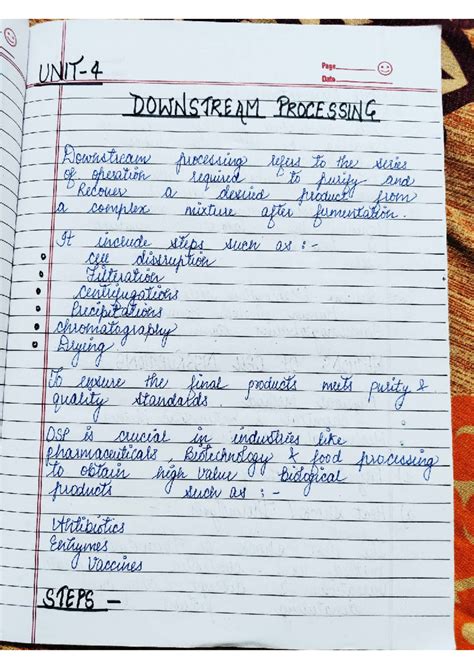 Page
Date
UNIT-4
DOWNSTREAM PROCESSING
Downstream processing refers to the series
of operation required to purify and
Recover a desired product from
a complex mixture after fermentation.
It include steps such as :-
cell dissruption
Filteration
Centrifugations
Precipitations
chromatography
Drying
To ensure the final products meets purity &
quality standards.
DSP is crucial in industries like
pharmaceuticals, Biotechnology & food processing
to obtain high value biological
products such as :-
Antibiotics
Enzymes
Vaccines
STEPS -